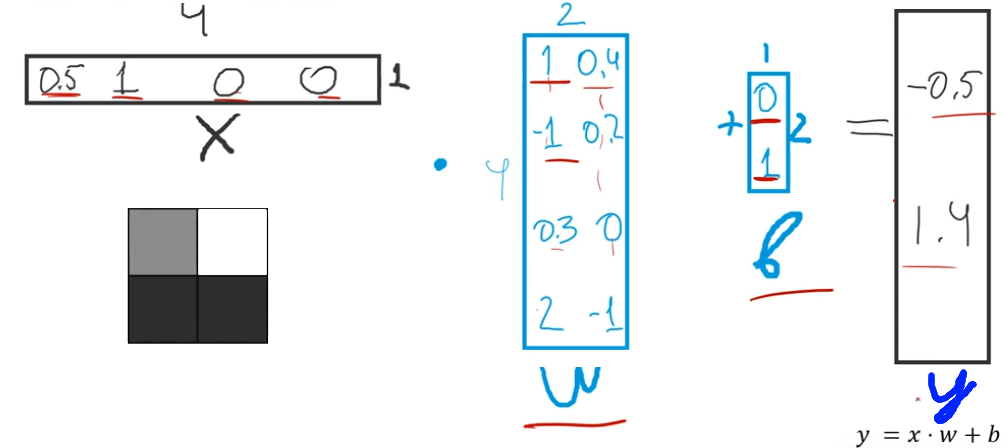 4
0.5 1 0 0 1
X
2
1 0,4
-1 0,2
4
0.3 0
2 -1
W
1
+ 0 2
1
b
=
-0,5
1.4
y
y = x · w + b